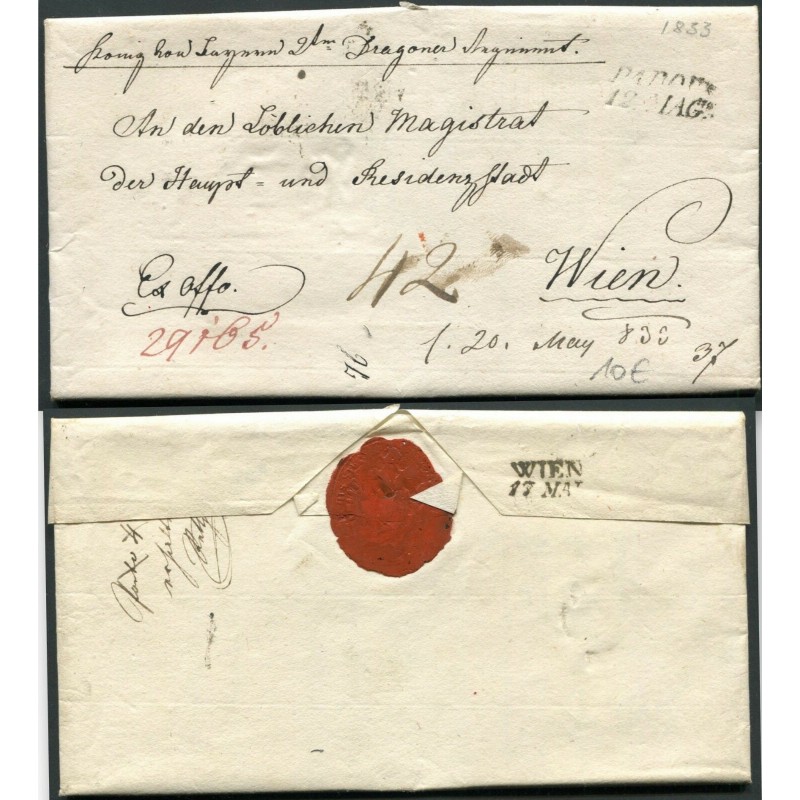 1833
König von Bayern 2tes Dragoner Regiment.
PADOVA
12. MAG.
An den Löblichen Magistrat
der Haupt = und Residenzstadt
Ex offo.
42
Wien.
29165.
76
/. 20. May 833
37
10€
WIEN
17 MAI
Porto